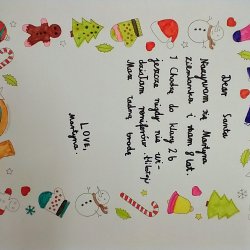 Dear Santa
Nazywam się Martyna
ziemianka i mam 8 lat.
Chodzę do klasy 2b
jeszcze nigdy nie wi-
działam reniferów
Masz ładną brodę
LOVE,
Martyna.